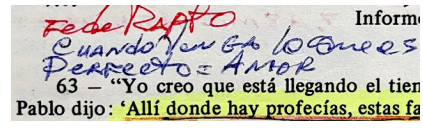 Fede RAPTO
Inform
CUANDO VENGA lo QUE es
PERFECTO = AMOR
63 — “Yo creo que está llegando el tien
Pablo dijo: ‘Allí donde hay profecías, estas fa